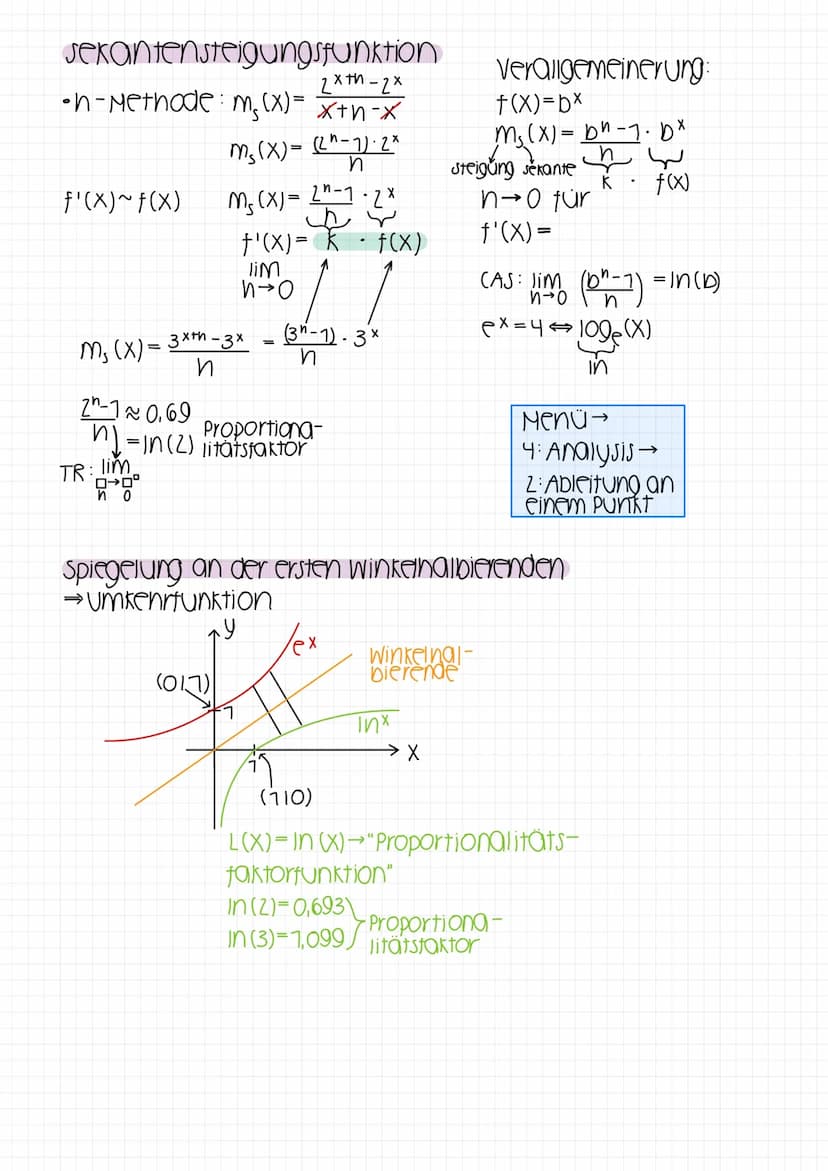 Sekantensteigungsfunktion
•h-Methode: mₛ(x) = (2^(x+h) - 2^x) / (x+h-x)
mₛ(x) = ((2^h - 1) · 2^x) / h
f'(x) ~ f(x)
mₛ(x) = (2^h - 1) / h · 2^x
f'(x) = k · f(x)
lim
h→0
mₛ(x) = (3^(x+h) - 3^x) / h = (3^h - 1) / h · 3^x
(2^h - 1) / h ≈ 0,69
= ln(2) Proportiona-
litätsfaktor
TR: lim
□→□°
h 0
Verallgemeinerung:
f(x) = b^x
mₛ(x) = (b^h - 1) / h · b^x
Steigung Sekante
k · f(x)
h→0 für
f'(x) =
CAS: lim h→0 ((b^h - 1) / h) = ln(b)
e^x = 4 ⇔ log_e(x)
ln
Menü→
4: Analysis→
2: Ableitung an
einem Punkt
Spiegelung an der ersten Winkelhalbierenden
⇒Umkehrfunktion
y
e^x
Winkelhal-
bierende
(0|1)
1
ln^x
x
1
(1|0)
L(x) = ln(x) → "Proportionalitäts-
faktorfunktion"
ln(2) = 0,693
ln(3) = 1,099
Proportiona-
litätsfaktor